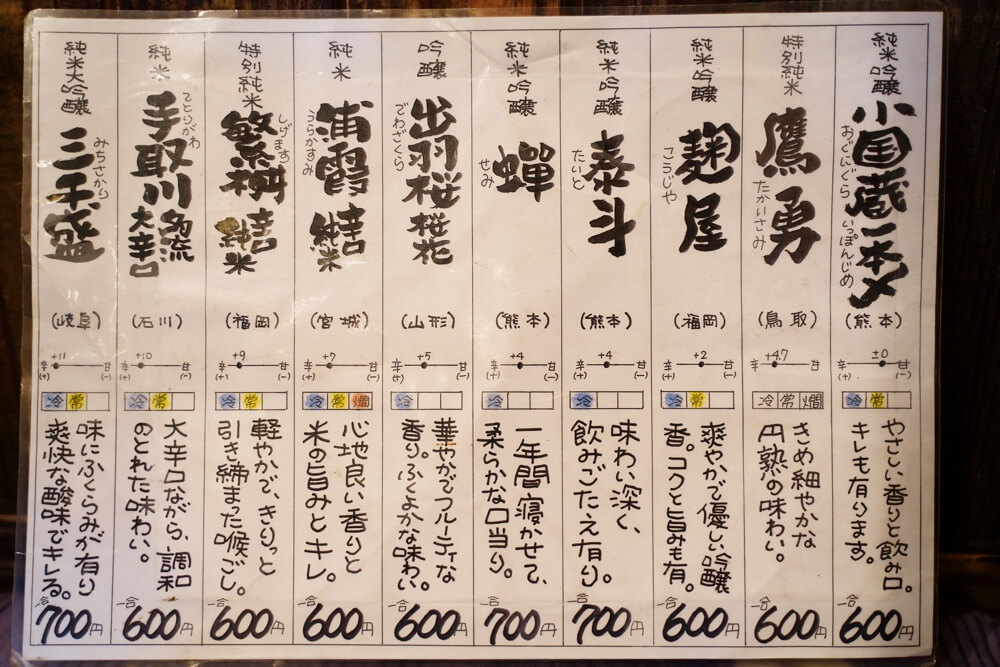 純米吟醸
小国蔵一本〆
おぐにぐら いっぽんじめ
(熊本)
±0
辛 甘
(+) (-)
冷 常
やさしい香りと飲み口。
キレも有ります。
一合
600円
特別純米
鷹勇
たかいさみ
(鳥取)
+4.7
辛 甘
(+) (-)
冷 常 燗
きめ細やかな
円熟の味わい。
一合
600円
純米吟醸
麹屋
こうじや
(福岡)
+2
辛 甘
(+) (-)
冷 常
爽やかで優しい吟醸
香。コクと旨みも有。
一合
600円
純米吟醸
泰斗
たいと
(熊本)
+4
辛 甘
(+) (-)
冷
味わい深く、
飲みごたえ有り。
一合
700円
純米吟醸
蝉
せみ
(熊本)
+4
辛 甘
(+) (-)
冷
一年間寝かせて、
柔らかな口当り。
一合
700円
吟醸
出羽桜 桜花
でわざくら
(山形)
+5
辛 甘
(+) (-)
冷
華やかでフルーティな
香り。ふくよかな味わい。
一合
600円
純米
浦霞 辛口 純米
うらかすみ
(宮城)
+7
辛 甘
(+) (-)
冷 常 燗
心地良い香りと
米の旨みとキレ。
一合
600円
特別純米
しげます
繁桝 辛口 純米
(福岡)
+9
辛 甘
(+) (-)
冷 常
軽やかで、きりっと
引き締まった喉ごし。
一合
600円
純米
てとりがわ
手取川 名流 大辛口
(石川)
+10
辛 甘
(+) (-)
冷 常
大辛口ながら、調和
のとれた味わい。
一合
600円
純米大吟醸
みちさかり
三千盛
(岐阜)
+11
辛 甘
(+) (-)
冷 常
味にふくらみが有り
爽快な酸味でキレる。
一合
700円